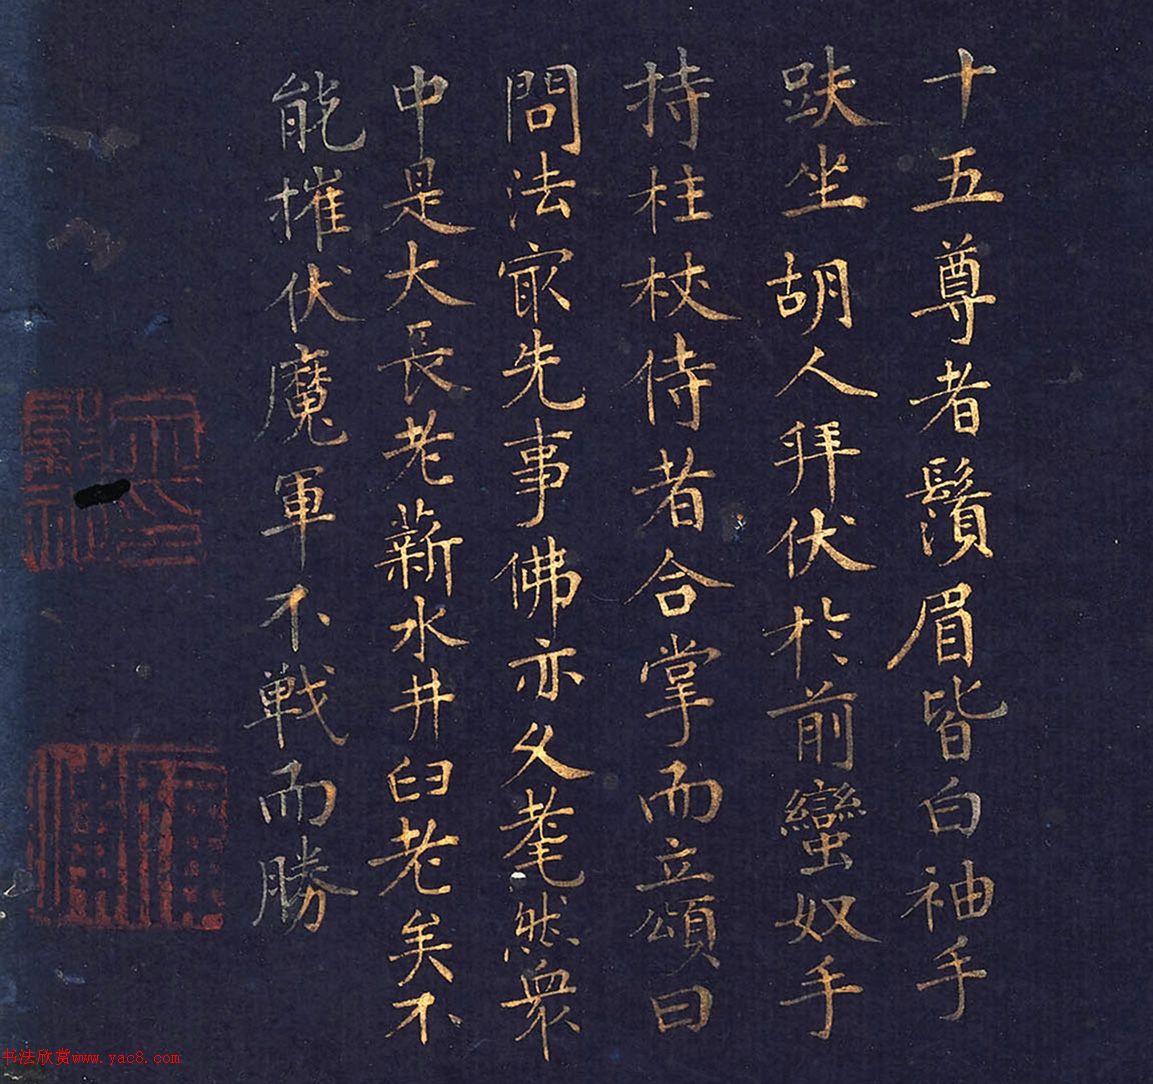 十五尊者鬚眉皆白袖手
趺坐胡人拜伏於前蠻奴手
持柱杖侍者合掌而立頌曰
問法冣先事佛亦久耄然衆
中是大長老薪水井臼老矣不
能摧伏魔軍不戦而勝
书法欣赏www.yac8.com